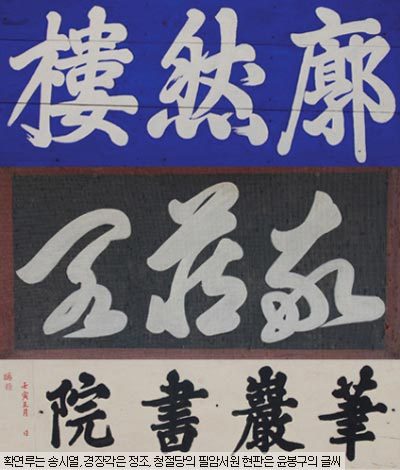 廓然樓
敬藏閣
筆巖書院
壬寅正月 日
賜額
확연루는 송시열, 경장각은 정조, 청절당의 필암서원 현판은 윤봉구의 글씨